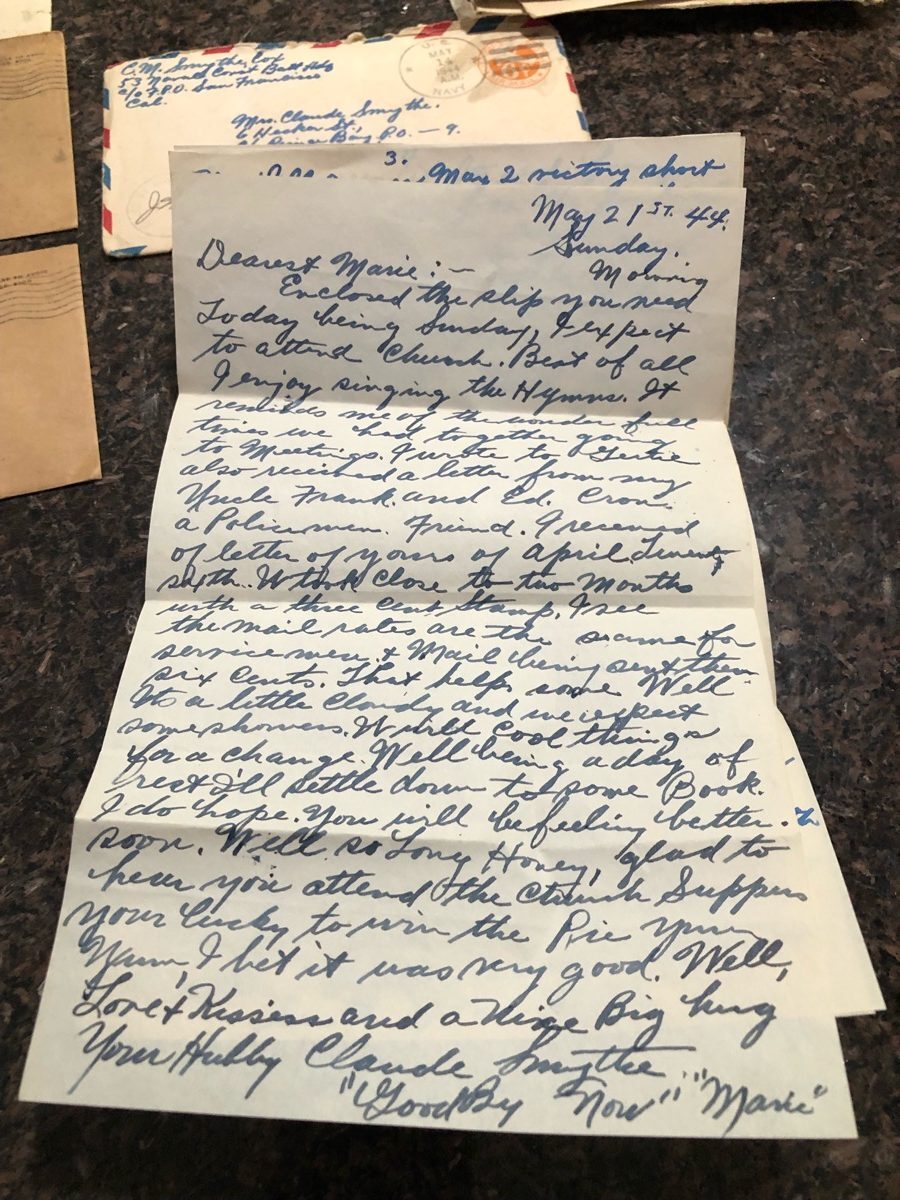 C. M. Smythe, Cox
53 Naval Const Batt Hdq
c/o F.P.O. San Francisco
Cal.
U.S.
MAY
NAVY
Mrs. Claude Smythe.
6 Hecker St.
P.O. - 9.
3.
May 2 victory short
May 21st. 44.
Sunday.
Morning
Dearest Marie:-
Enclosed the slip you need
Today being Sunday, I expect
to attend Church. Best of all
I enjoy singing the Hymns. It
reminds me of the wonder full
times we had together going
to Meetings. I wrote to Gertie
also received a letter from my
Uncle Frank. and Ed. Cron.
a Policemen. Friend. I received
of letter of yours of April Twenty
sixth. It took close to two Months
with a three cent Stamp. I see
the mail rates are the same for
service men. & Mail being sent them
six cents. That helps some Well
Its a little Cloudy and we expect
some showers. It will cool things
for a change. Well being a day of
rest I'll settle down to some Book.
I do hope. You will be feeling better.
soon. Well so Long Honey, glad to
hear you attend the Church Suppers
your lucky to win the Pie Yum
Yum, I bet it was very good. Well,
Love & Kissess and a Nice Big hug
Your Hubby Claude Smythe
"Good By Now" "Marie"